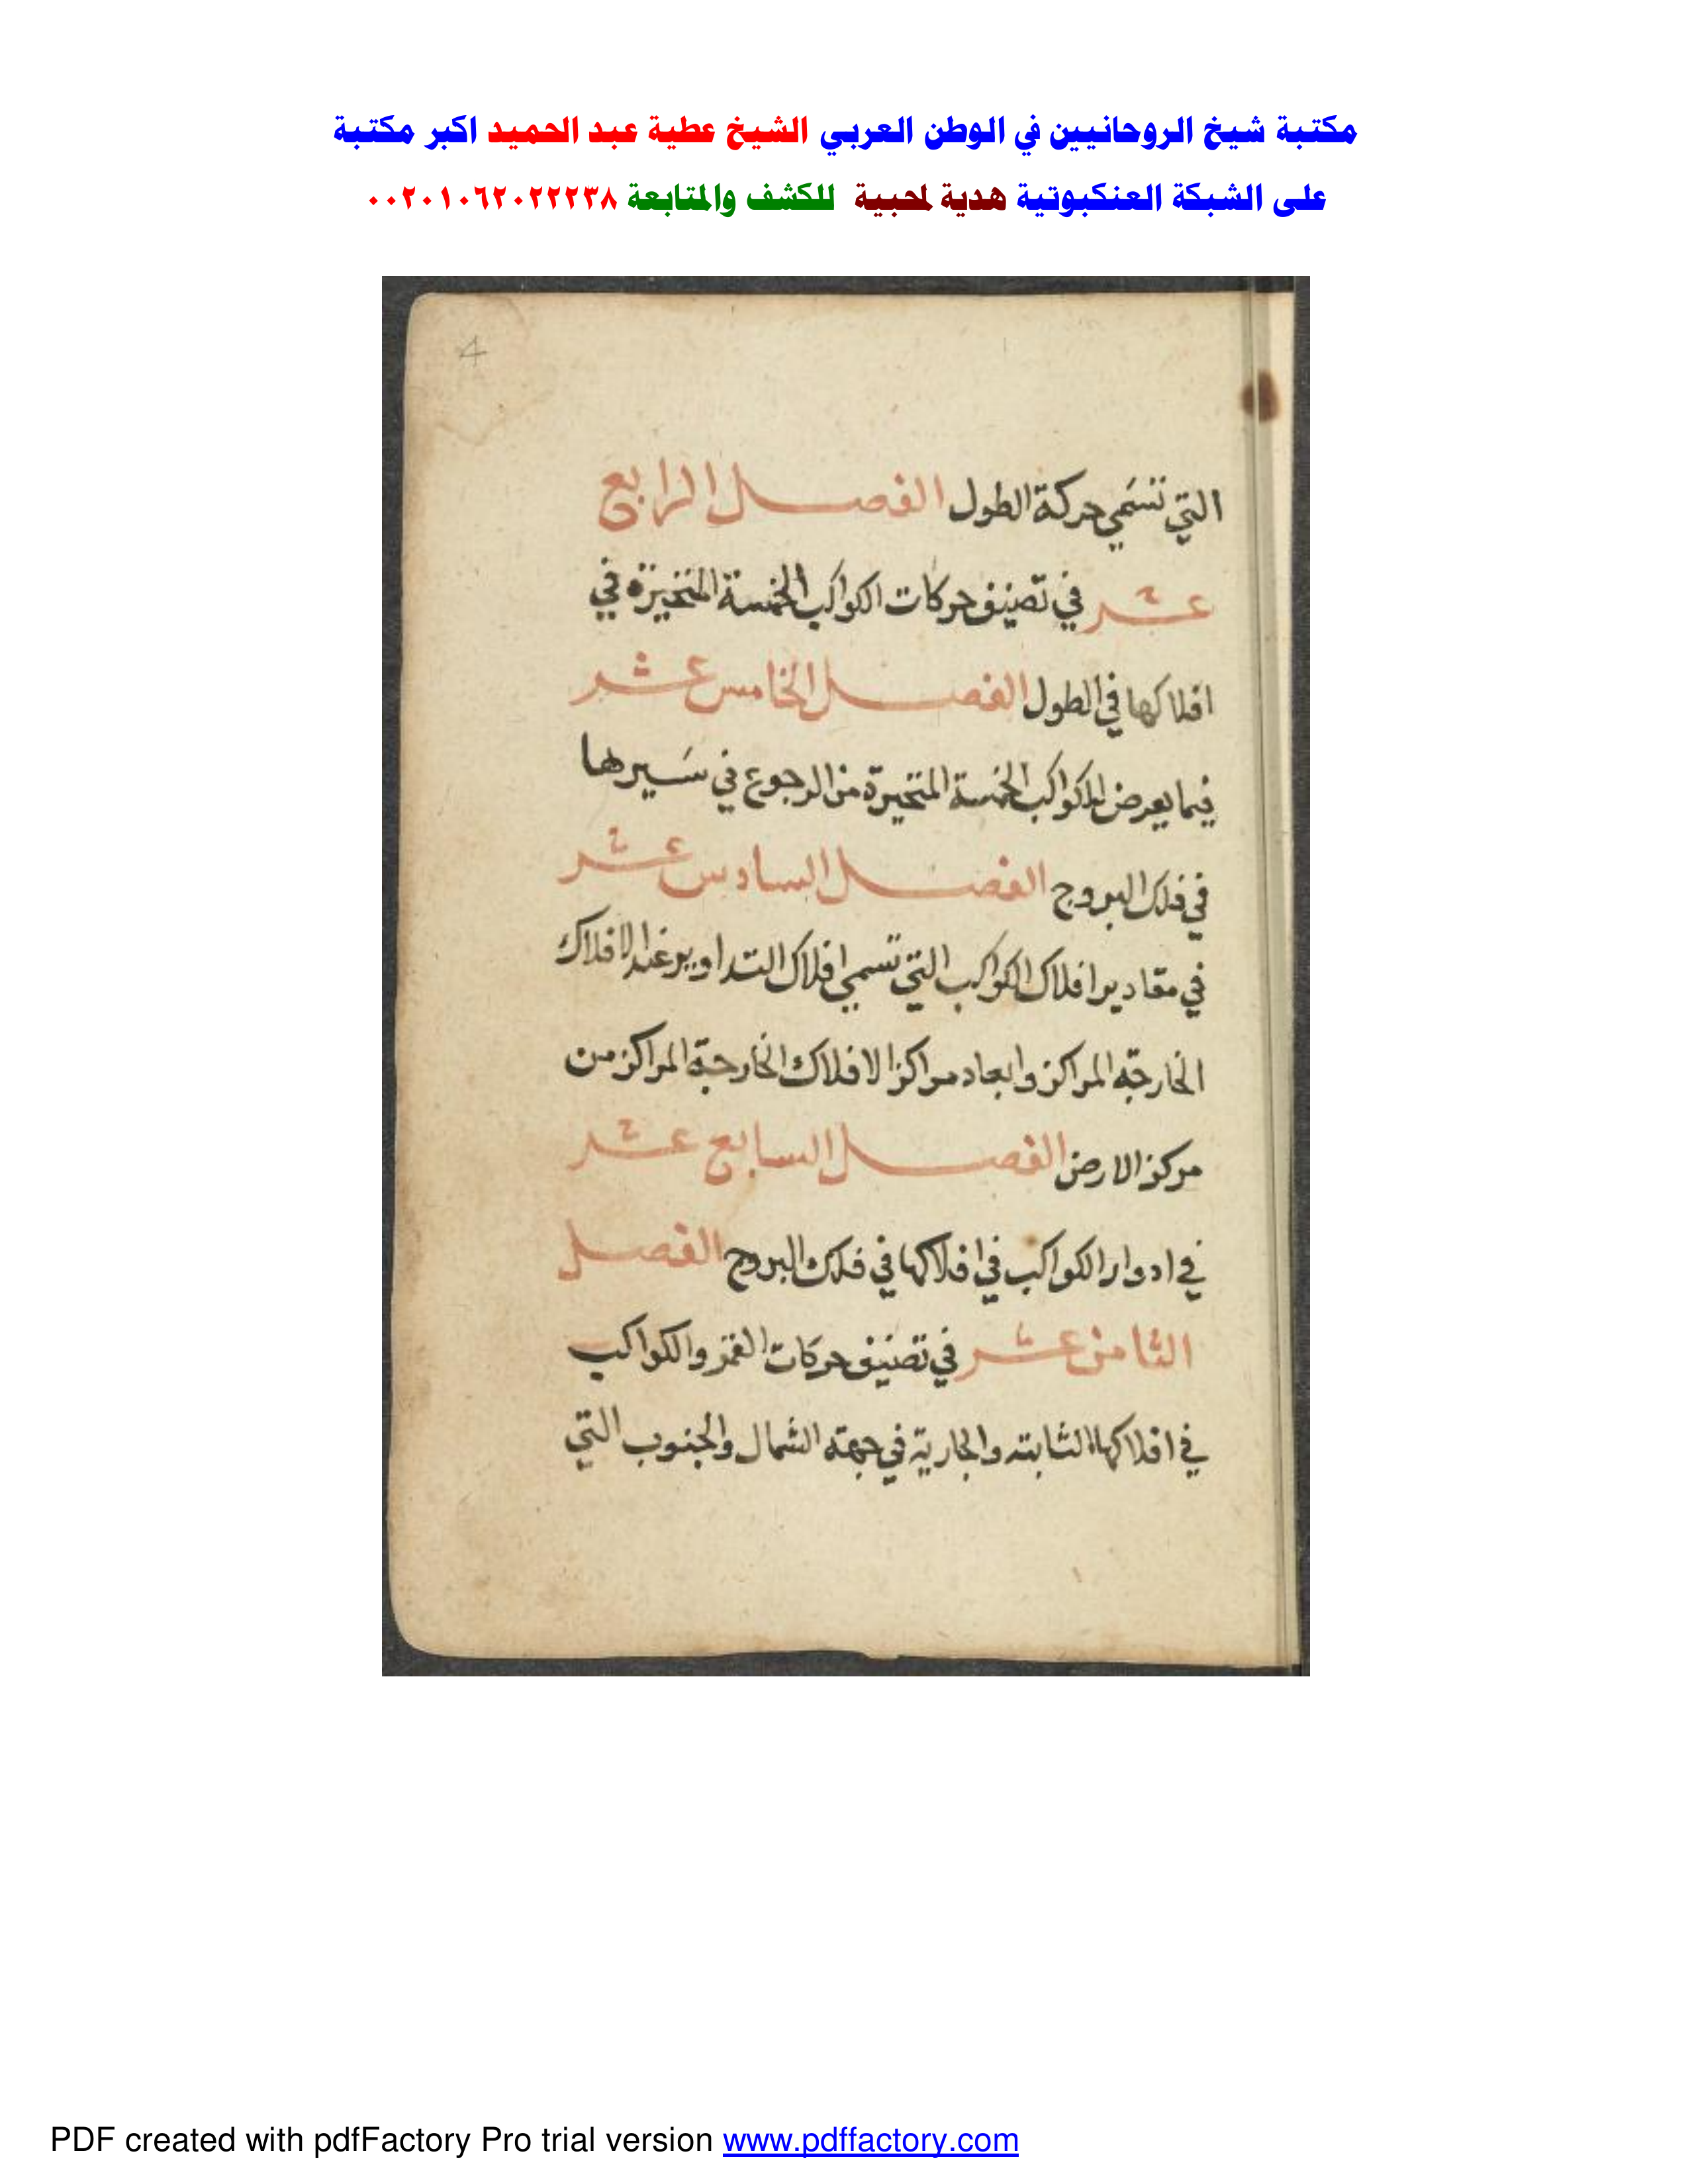 مكتبة شيخ الروحانيين في الوطن العربي الشيخ عطية عبد الحميد اكبر مكتبة
على الشبكة العنكبوتية هدية لمحبية للكشف والمتابعة ٠٠٢٠١٠٦٢٠٢٢٢٣٨
4
التي تسَمي حركة الطول الفصل الرابع
عشر في تصنيف حركات الكواكب الخمسة المتحيزة في
افلاكها في الطول الفصل الخامس عشر
فيما يعرض للكواكب الخمسة المتحيرة من الرجوع في سَيرها
في فلك البروج الفصل السادس عشر
في مقادير افلاك الكواكب التي تسمي افلاك التداوير عند الافلاك
الخارجة المراكز وابعاد مراكز الافلاك الخارجة المراكز من
مركز الارض الفصل السابع عشر
في ادوار الكواكب في افلاكها في فلك البروج الفصل
الثامن عشر في تصنيف حركات القمر والكواكب
في افلاكها الثابته والجارية في جهته الشمال والجنوب التي
PDF created with pdfFactory Pro trial version www.pdffactory.com